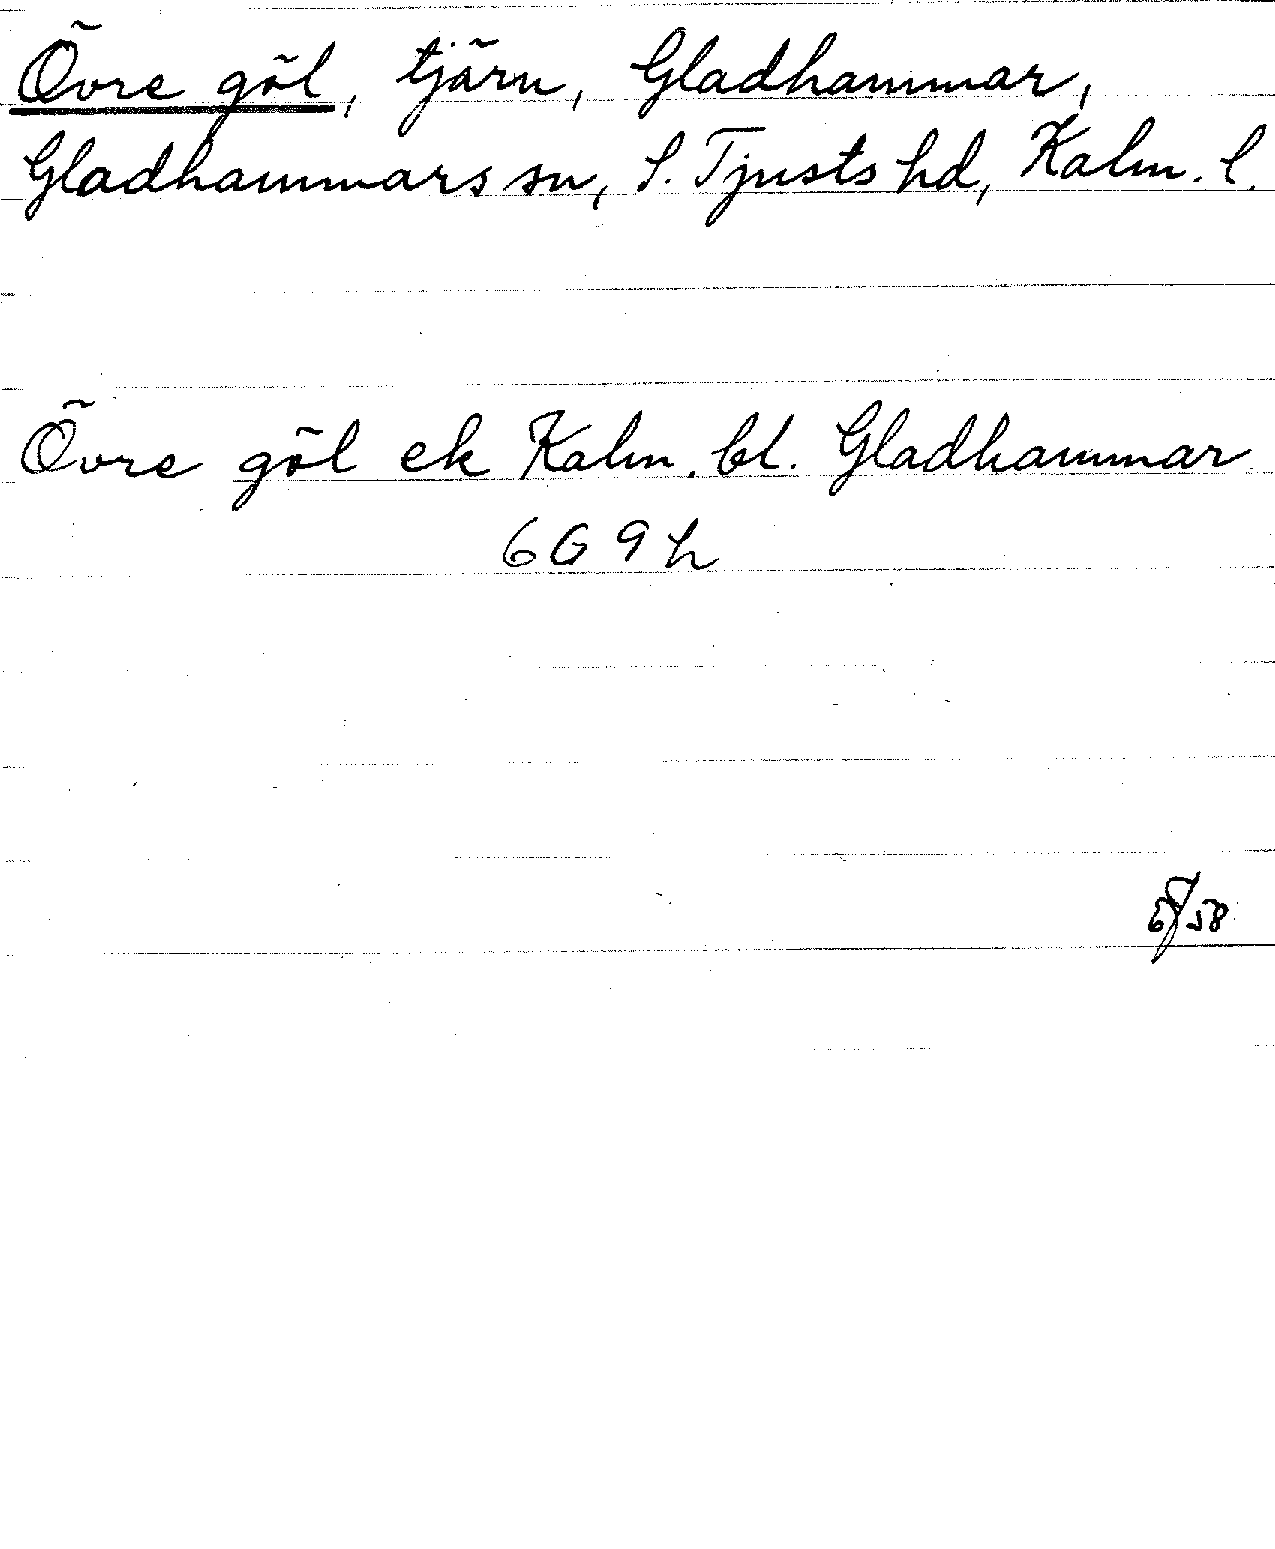 Övre göl, tjärn, Gladhammar,
Gladhammars sn, S. Tjusts hd, Kalm. l.
Övre göl ek Kalm. bl. Gladhammar
6G 9h